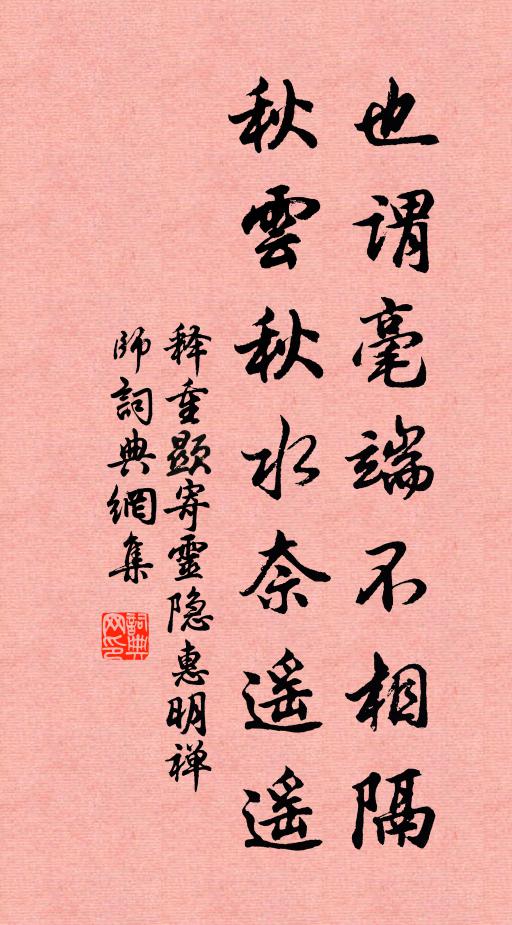 也謂毫端不相隔
秋雲秋水奈遥遥
释重顯寄靈隐惠明禅
师詞典網集
詞典
网印